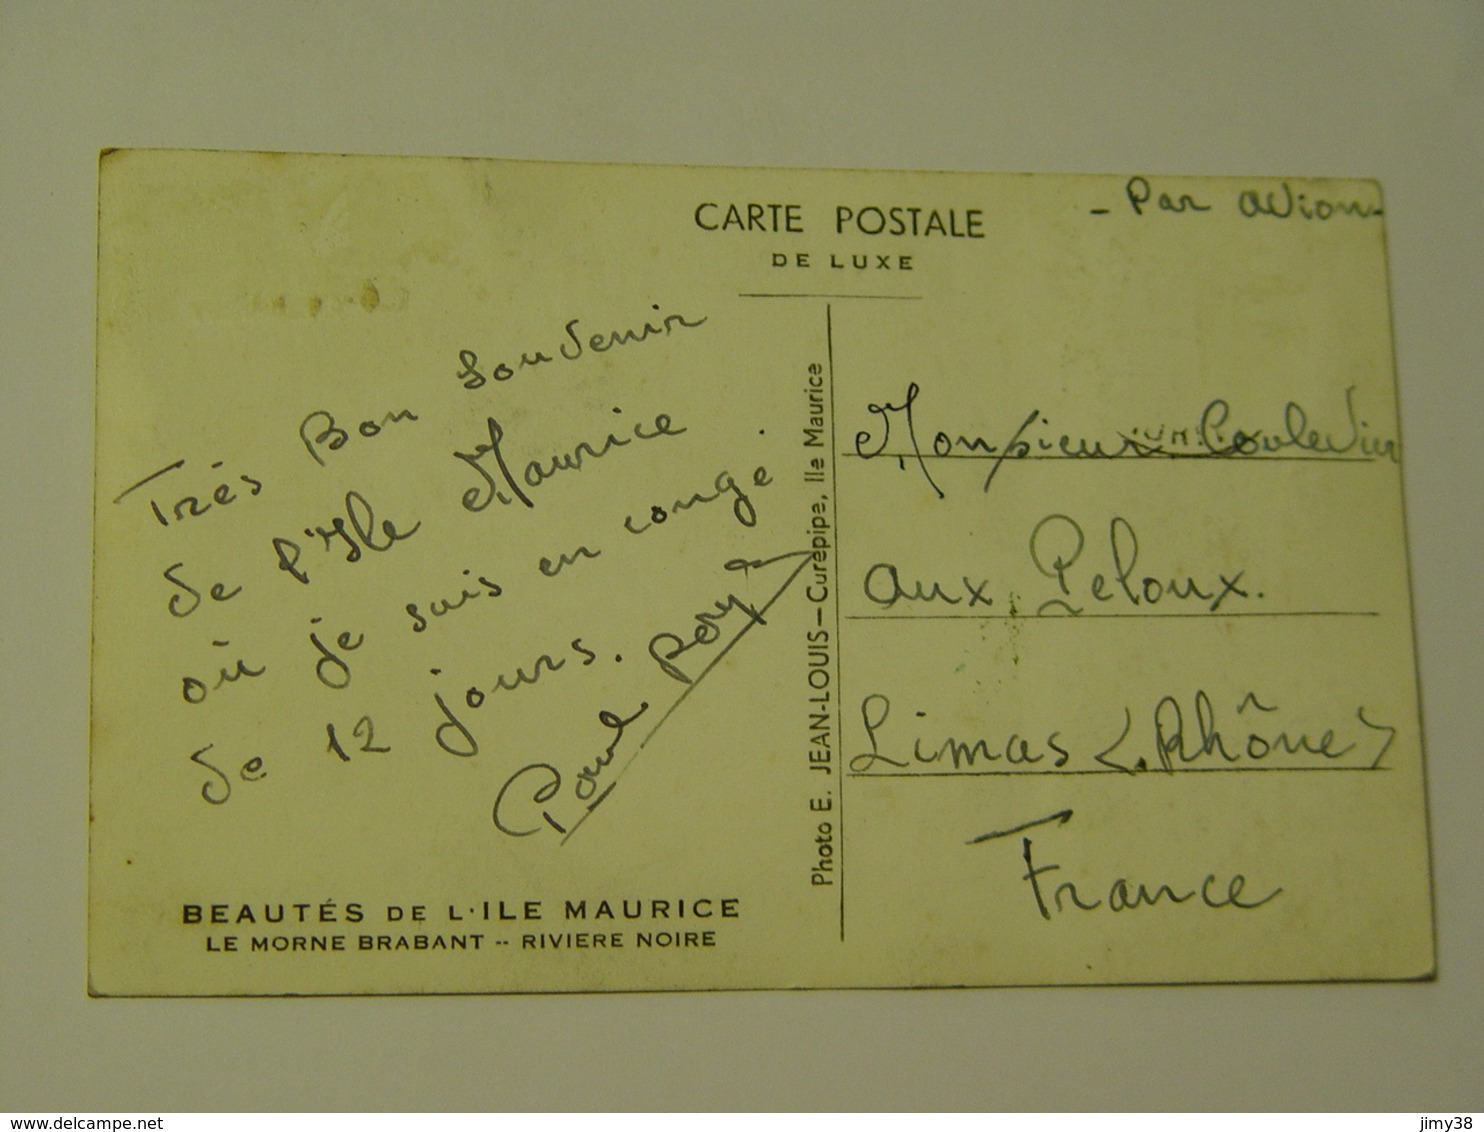 CARTE POSTALE
DE LUXE
- Par avion -
Très Bon souvenir
de l'Ile Maurice
où je suis en congé
de 12 jours.
Paul
Monsieur Couledier
aux Peloux.
Limas (Rhône)
France
Photo E. JEAN-LOUIS — Curepipe, Ile Maurice
BEAUTÉS DE L'ILE MAURICE
LE MORNE BRABANT -- RIVIERE NOIRE
delcampe.net
jimy38